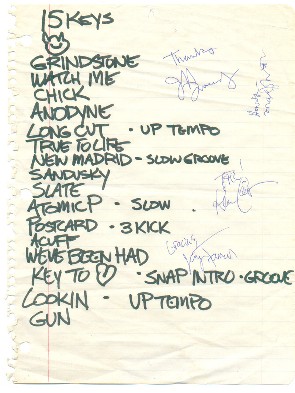 15 KEYS
GRINDSTONE
WATCH ME
CHICK
ANODYNE
LONG CUT - UP TEMPO
TRUE TO LIFE
NEW MADRID - SLOW GROOVE
SANDUSKY
SLATE
ATOMIC P - SLOW
POSTCARD - 3 KICK
ACUFF
WE'VE BEEN HAD
KEY TO ♡ - SNAP INTRO - GROOVE
LOOKIN - UP TEMPO
GUN
Thanks